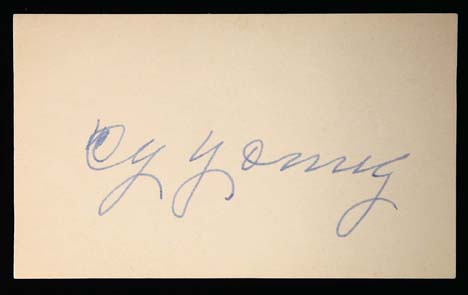 Cy Young